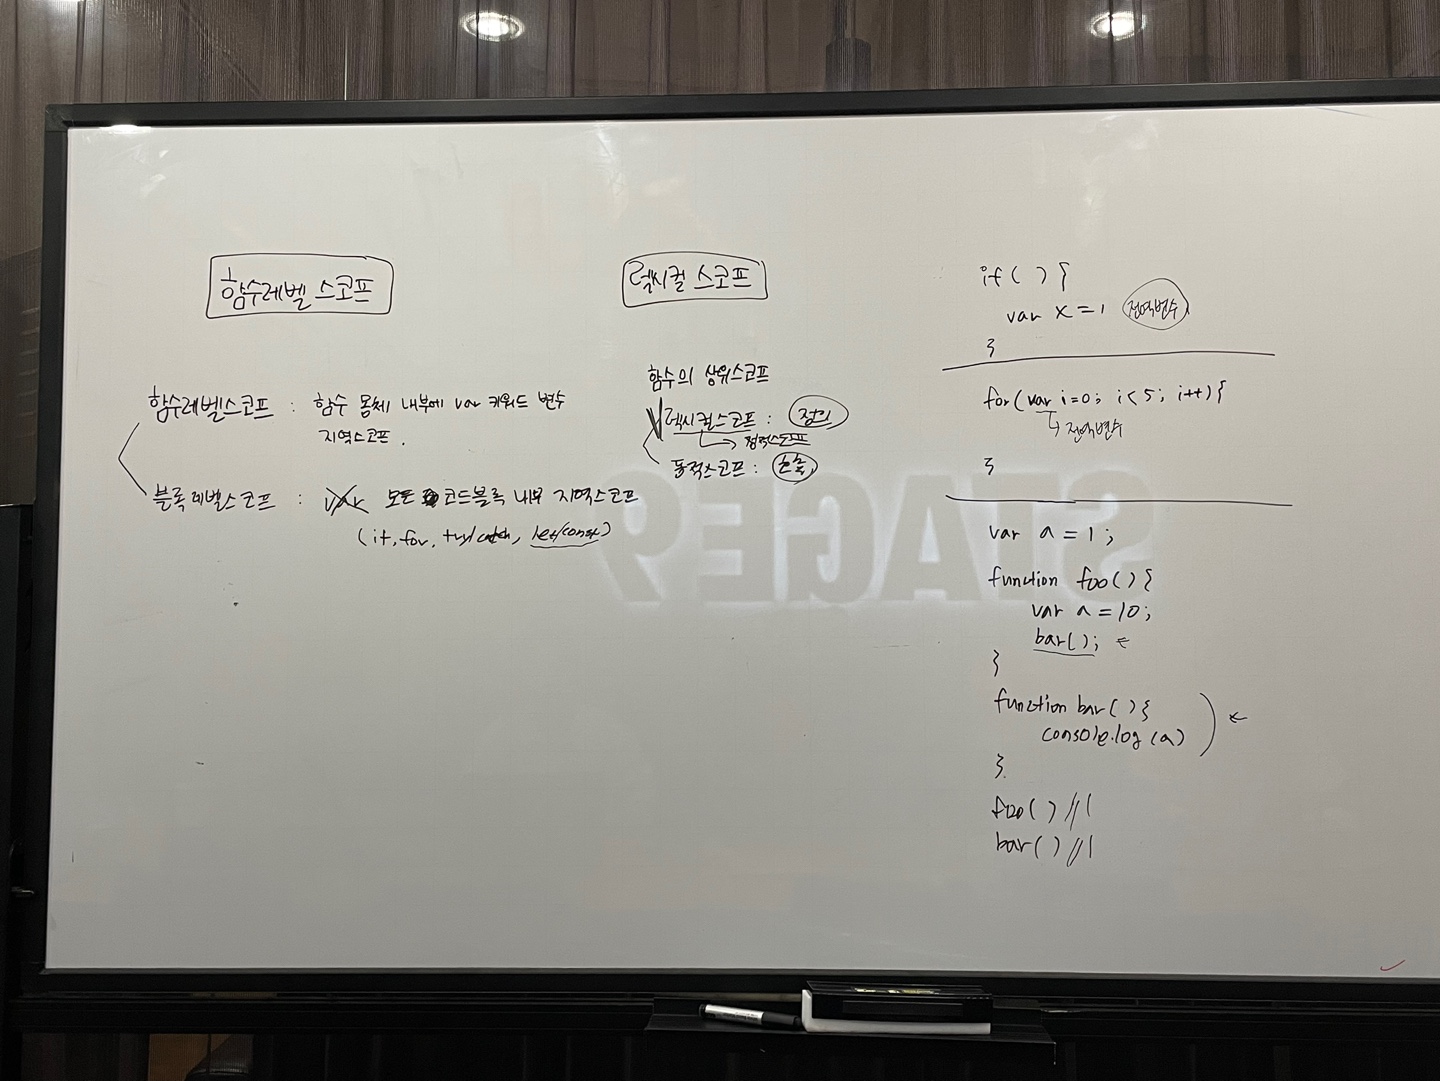 함수레벨 스코프
함수레벨스코프 : 함수 몸체 내부에 var 키워드 변수
지역스코프.
블록레벨스코프 : var 모든 코드블록 내부 지역스코프
(if, for, try/catch, let/const)
렉시컬 스코프
함수의 상위스코프
렉시컬스코프 : 정의
정적스코프
동적스코프 : 호출
if ( ) {
var x = 1 전역변수
}
for(var i=0; i<5; i++){
전역변수
}
var a = 1;
function foo() {
var a = 10;
bar(); ←
}
function bar() {
console.log(a) ←
}
foo() //1
bar() //1
STAGE9